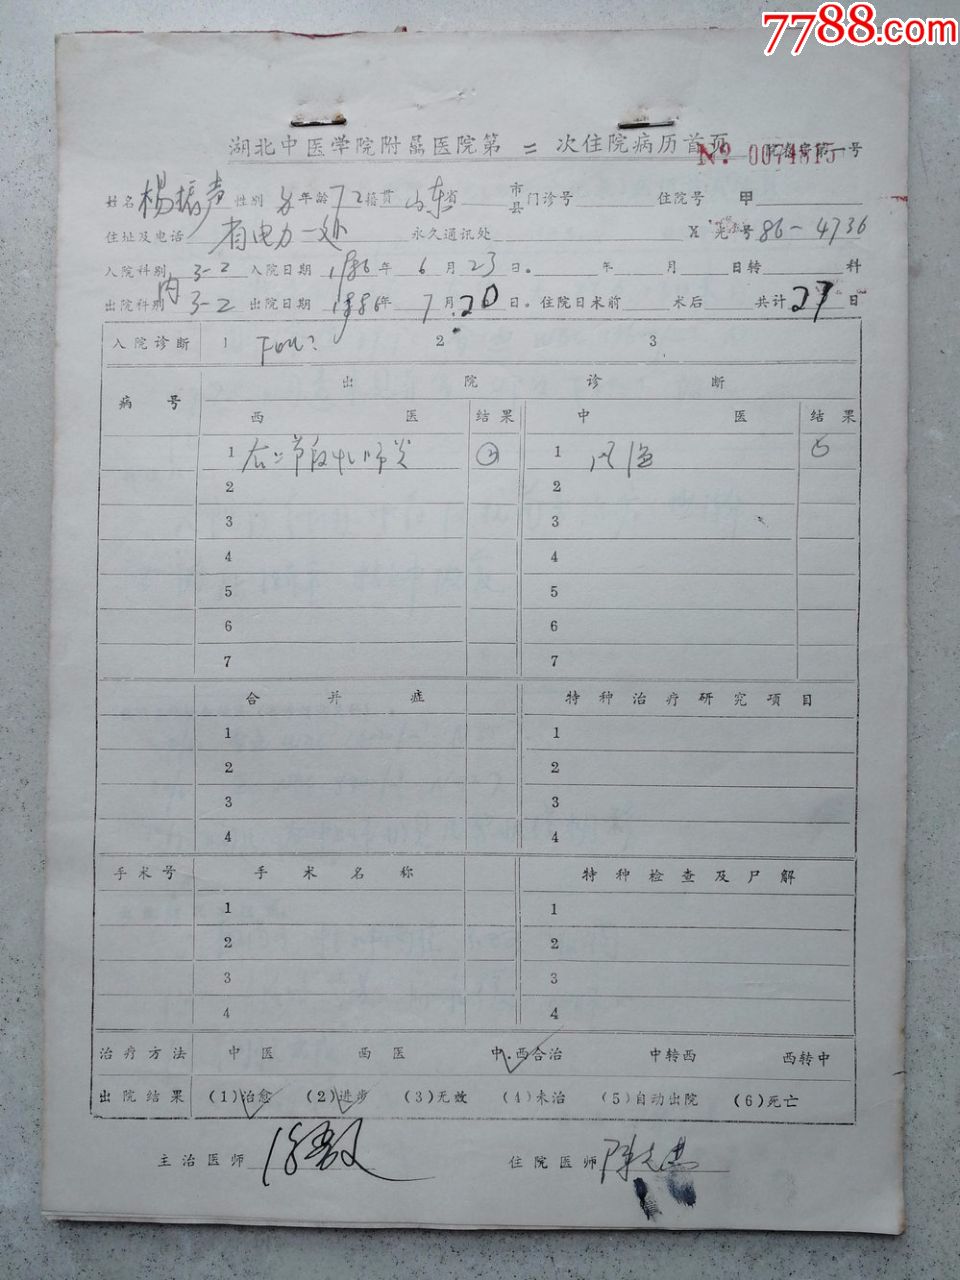 7788.com
湖北中医学院附属医院第 二 次住院病历首页
No: 0074815
姓名 杨振声 性别 男 年龄 72 籍贯 山东 省 市县 门诊号 住院号 甲
住址及电话 省电力一处 永久通讯处 X光号 86-4736
入院科别 内3-2 入院日期 1986年 6月23日。 年 月 日转 科
出院科别 3-2 出院日期 1986年 7月20日。住院日术前 术后 共计27日
入院诊断 1 Fou? 2 3
病号 出院诊断
西医 结果 中医 结果
1 右 节段性肺炎 1 风温
2 2
3 3
4 4
5 5
6 6
7 7
合并症 特种治疗研究项目
1 1
2 2
3 3
4 4
手术号 手术名称 特种检查及尸解
1 1
2 2
3 3
4 4
治疗方法 中医 西医 中.西合治 中转西 西转中
出院结果 (1)治愈 (2)进步 (3)无效 (4)未治 (5)自动出院 (6)死亡
主治医师 住院医师